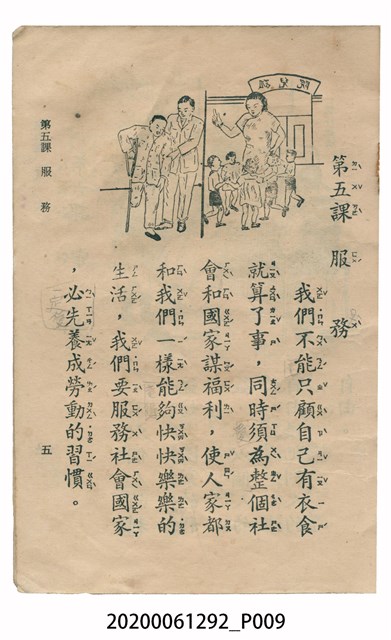 孤兒院
第五課 服務
我們不能只顧自己有衣食
就算了事，同時須為整個社
會和國家謀福利，使人家都
和我們一樣能夠快快樂樂的
生活，我們要服務社會國家
，必先養成勞動的習慣。
第五課 服務
五
20200061292_P009